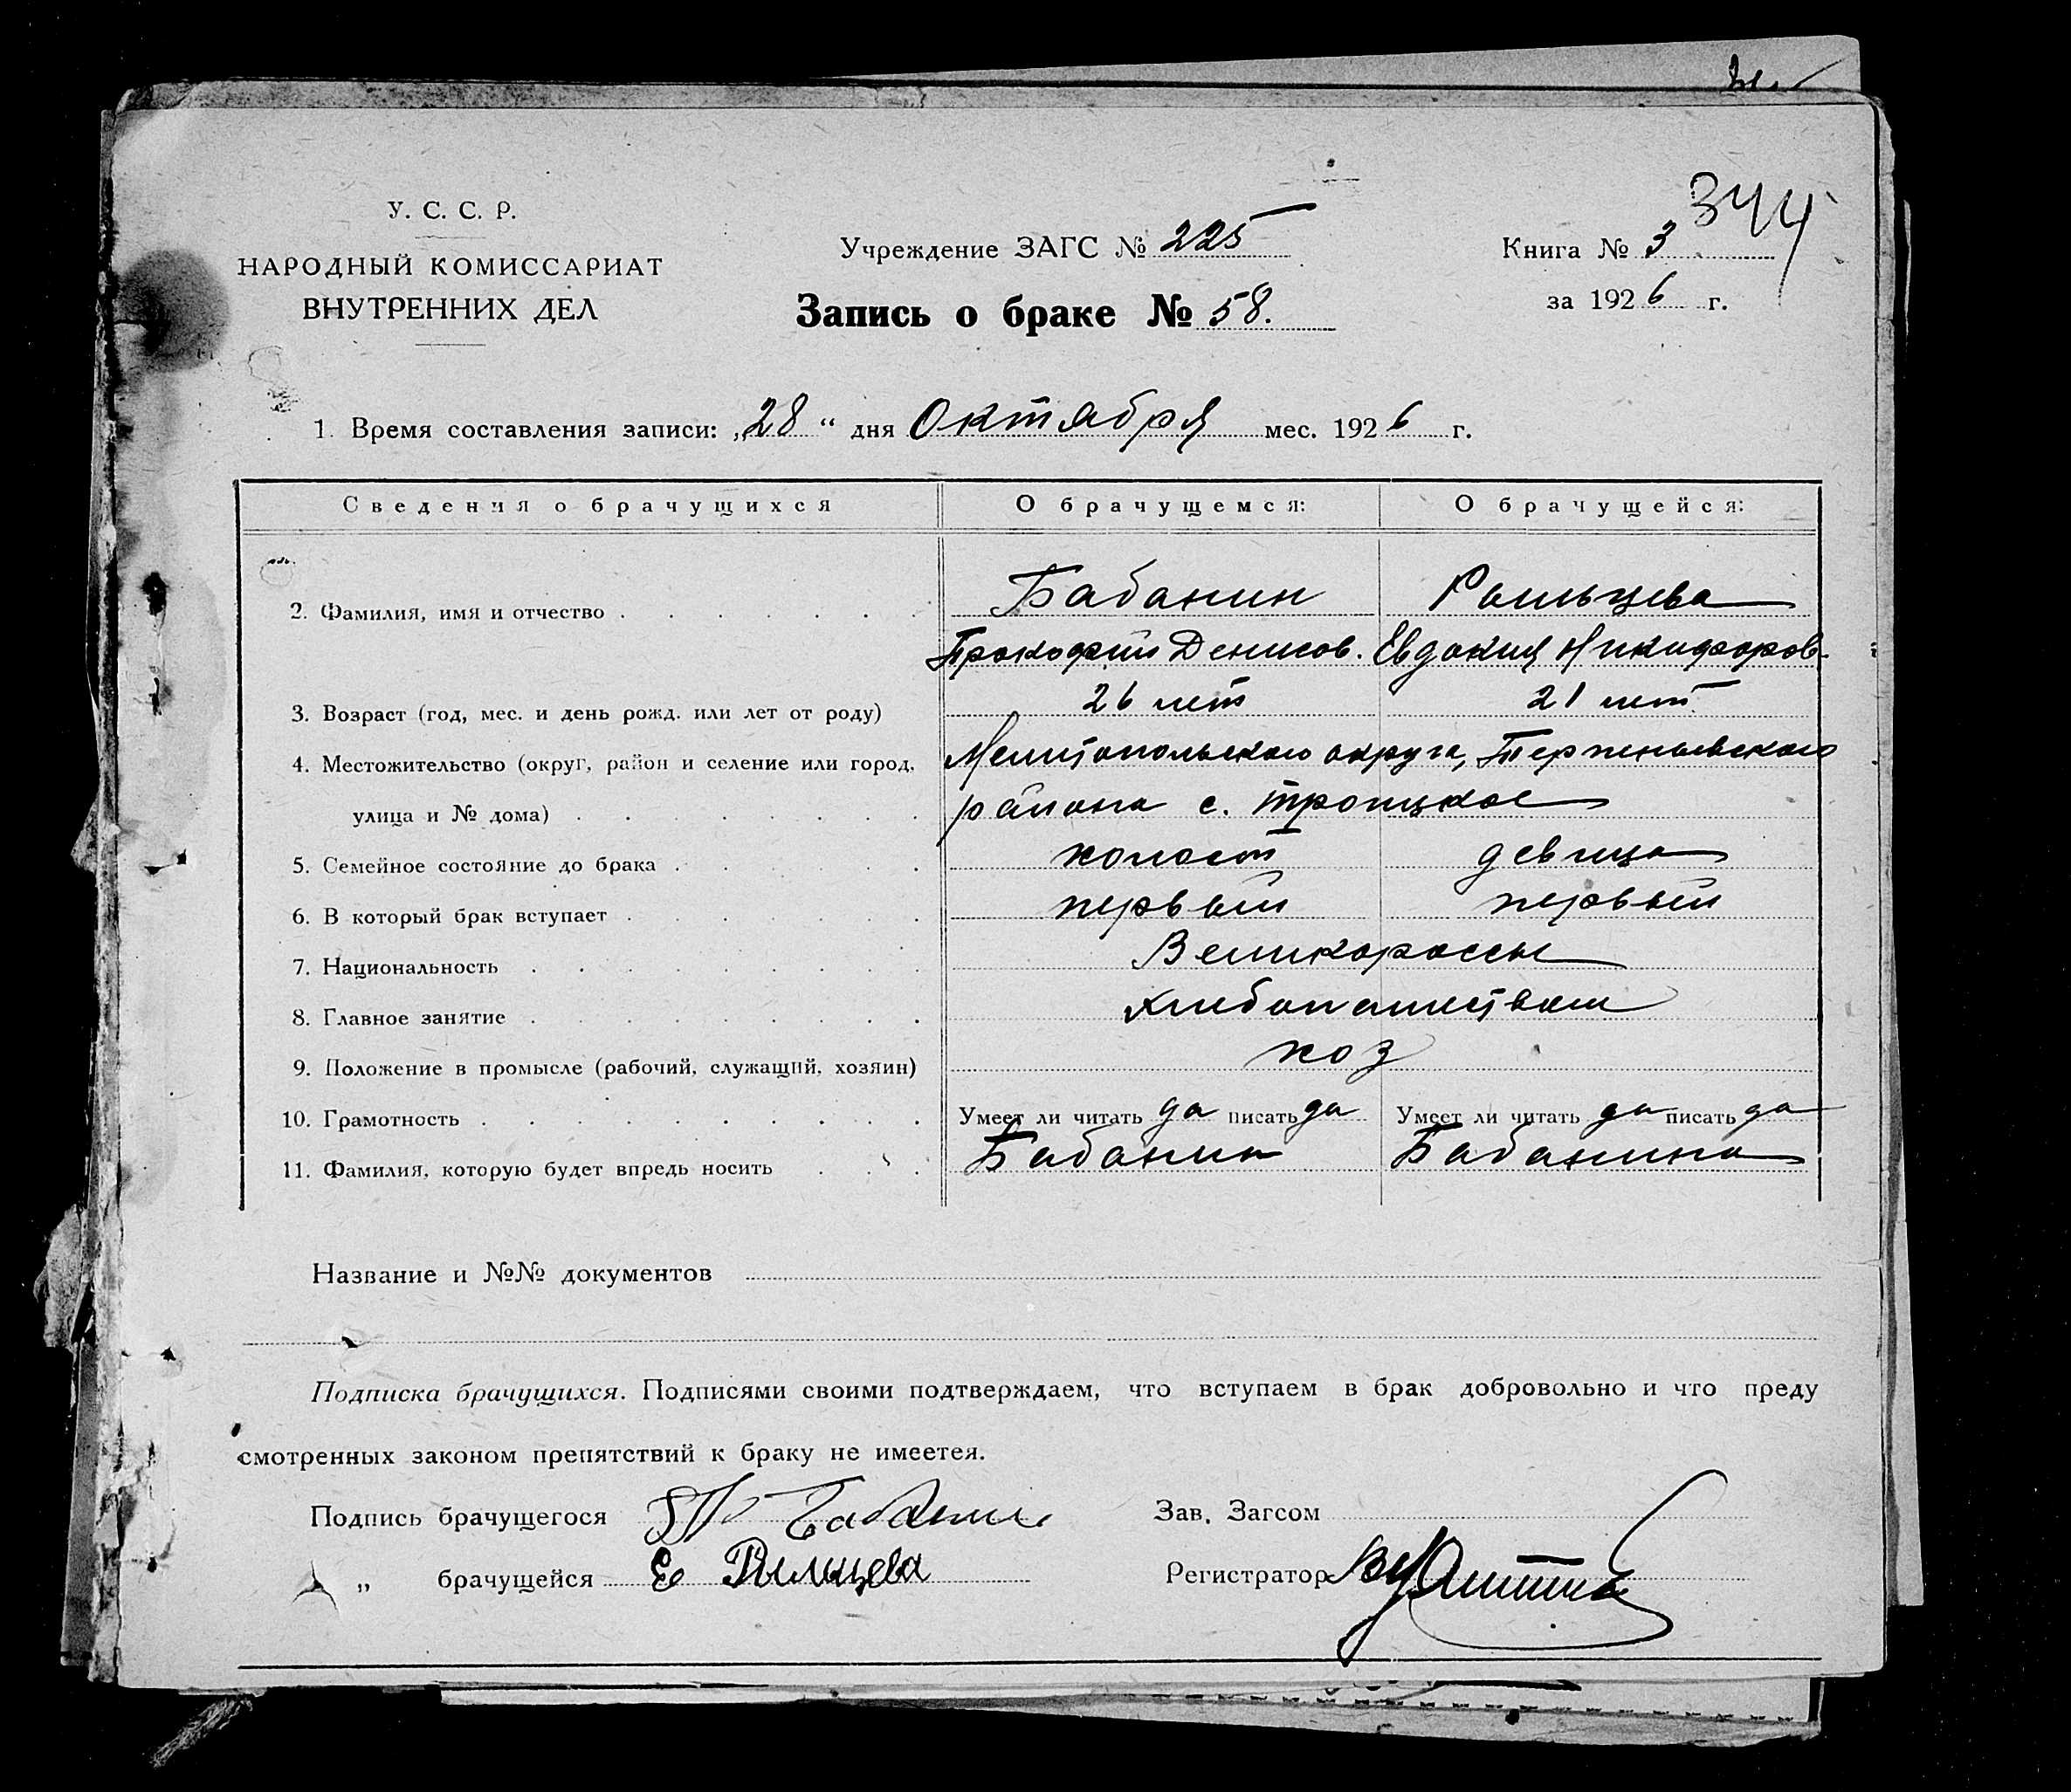 344
У. С. С. Р.
НАРОДНЫЙ КОМИССАРИАТ
ВНУТРЕННИХ ДЕЛ
Учреждение ЗАГС № 225
Книга № 3
Запись о браке № 58.
за 1926 г.
1. Время составления записи: „28“ дня Октября мес. 1926 г.
Сведения о брачущихся О брачущемся: О брачущейся:
2. Фамилия, имя и отчество Бабанин Рыльцева
Прокофий Денисов. Евдокия Никифоров.
3. Возраст (год, мес. и день рожд. или лет от роду) 26 лет 21 лет
4. Местожительство (округ, район и селение или город, Мелитопольского округа, Терпеньевского
улица и № дома) района с. Троицкое
5. Семейное состояние до брака холост девица
6. В который брак вступает первый первый
7. Национальность Великороссы
8. Главное занятие хлебопашеством
9. Положение в промысле (рабочий, служащий, хозяин) хоз
10. Грамотность Умеет ли читать да писать да Умеет ли читать да писать да
11. Фамилия, которую будет впредь носить Бабанин Бабанина
Название и №№ документов
Подписка брачущихся. Подписями своими подтверждаем, что вступаем в брак добровольно и что преду
смотренных законом препятствий к браку не имеетея.
Подпись брачущегося Бабанин Зав. Загсом
„ брачущейся Е Рыльцева Регистратор